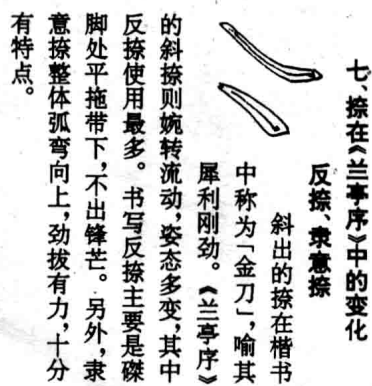 七、捺在《兰亭序》中的变化
反捺、隶意捺
斜出的捺在楷书
中称为「金刀」，喻其
犀利刚劲。《兰亭序》
的斜捺则婉转流动，姿态多变，其中
反捺使用最多。书写反捺主要是磔
脚处平拖带下，不出锋芒。另外，隶
意捺整体弧弯向上，劲拔有力，十分
有特点。